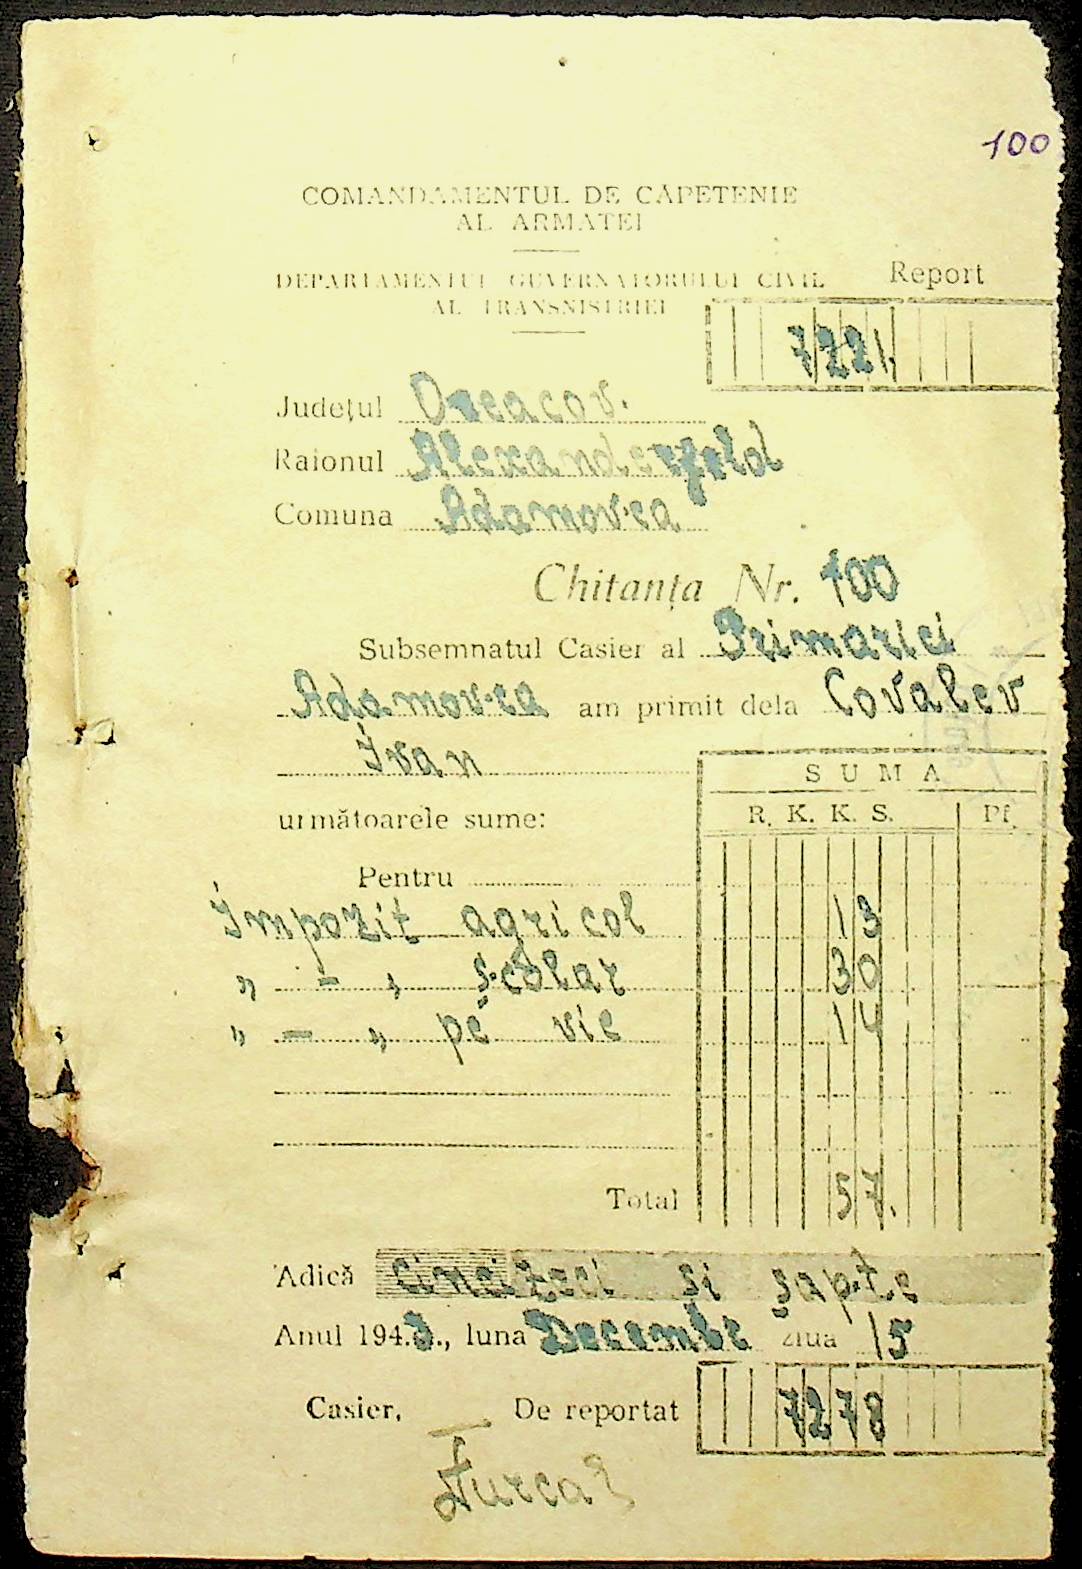 100
COMANDAMENTUL DE CĂPETENIE
AL ARMATEI
DEPARTAMENTUL GUVERNATORULUI CIVIL
AL TRANSNISTRIEI
Report
7221
Județul Oceacov.
Raionul Alexanderfeld
Comuna Adamovca
Chitanța Nr. 100
Subsemnatul Casier al Primariei
Adamovca am primit dela Covalev
Ivan
SUMA
următoarele sume: R. K. K. S. Pf.
Pentru
Impozit agricol 13
„ - „ școlar 30
„ - „ pe vie 14
Total 57.
Adică cincizeci și șapte
Anul 1943., luna Decembr ziua 15
Casier, De reportat 7278